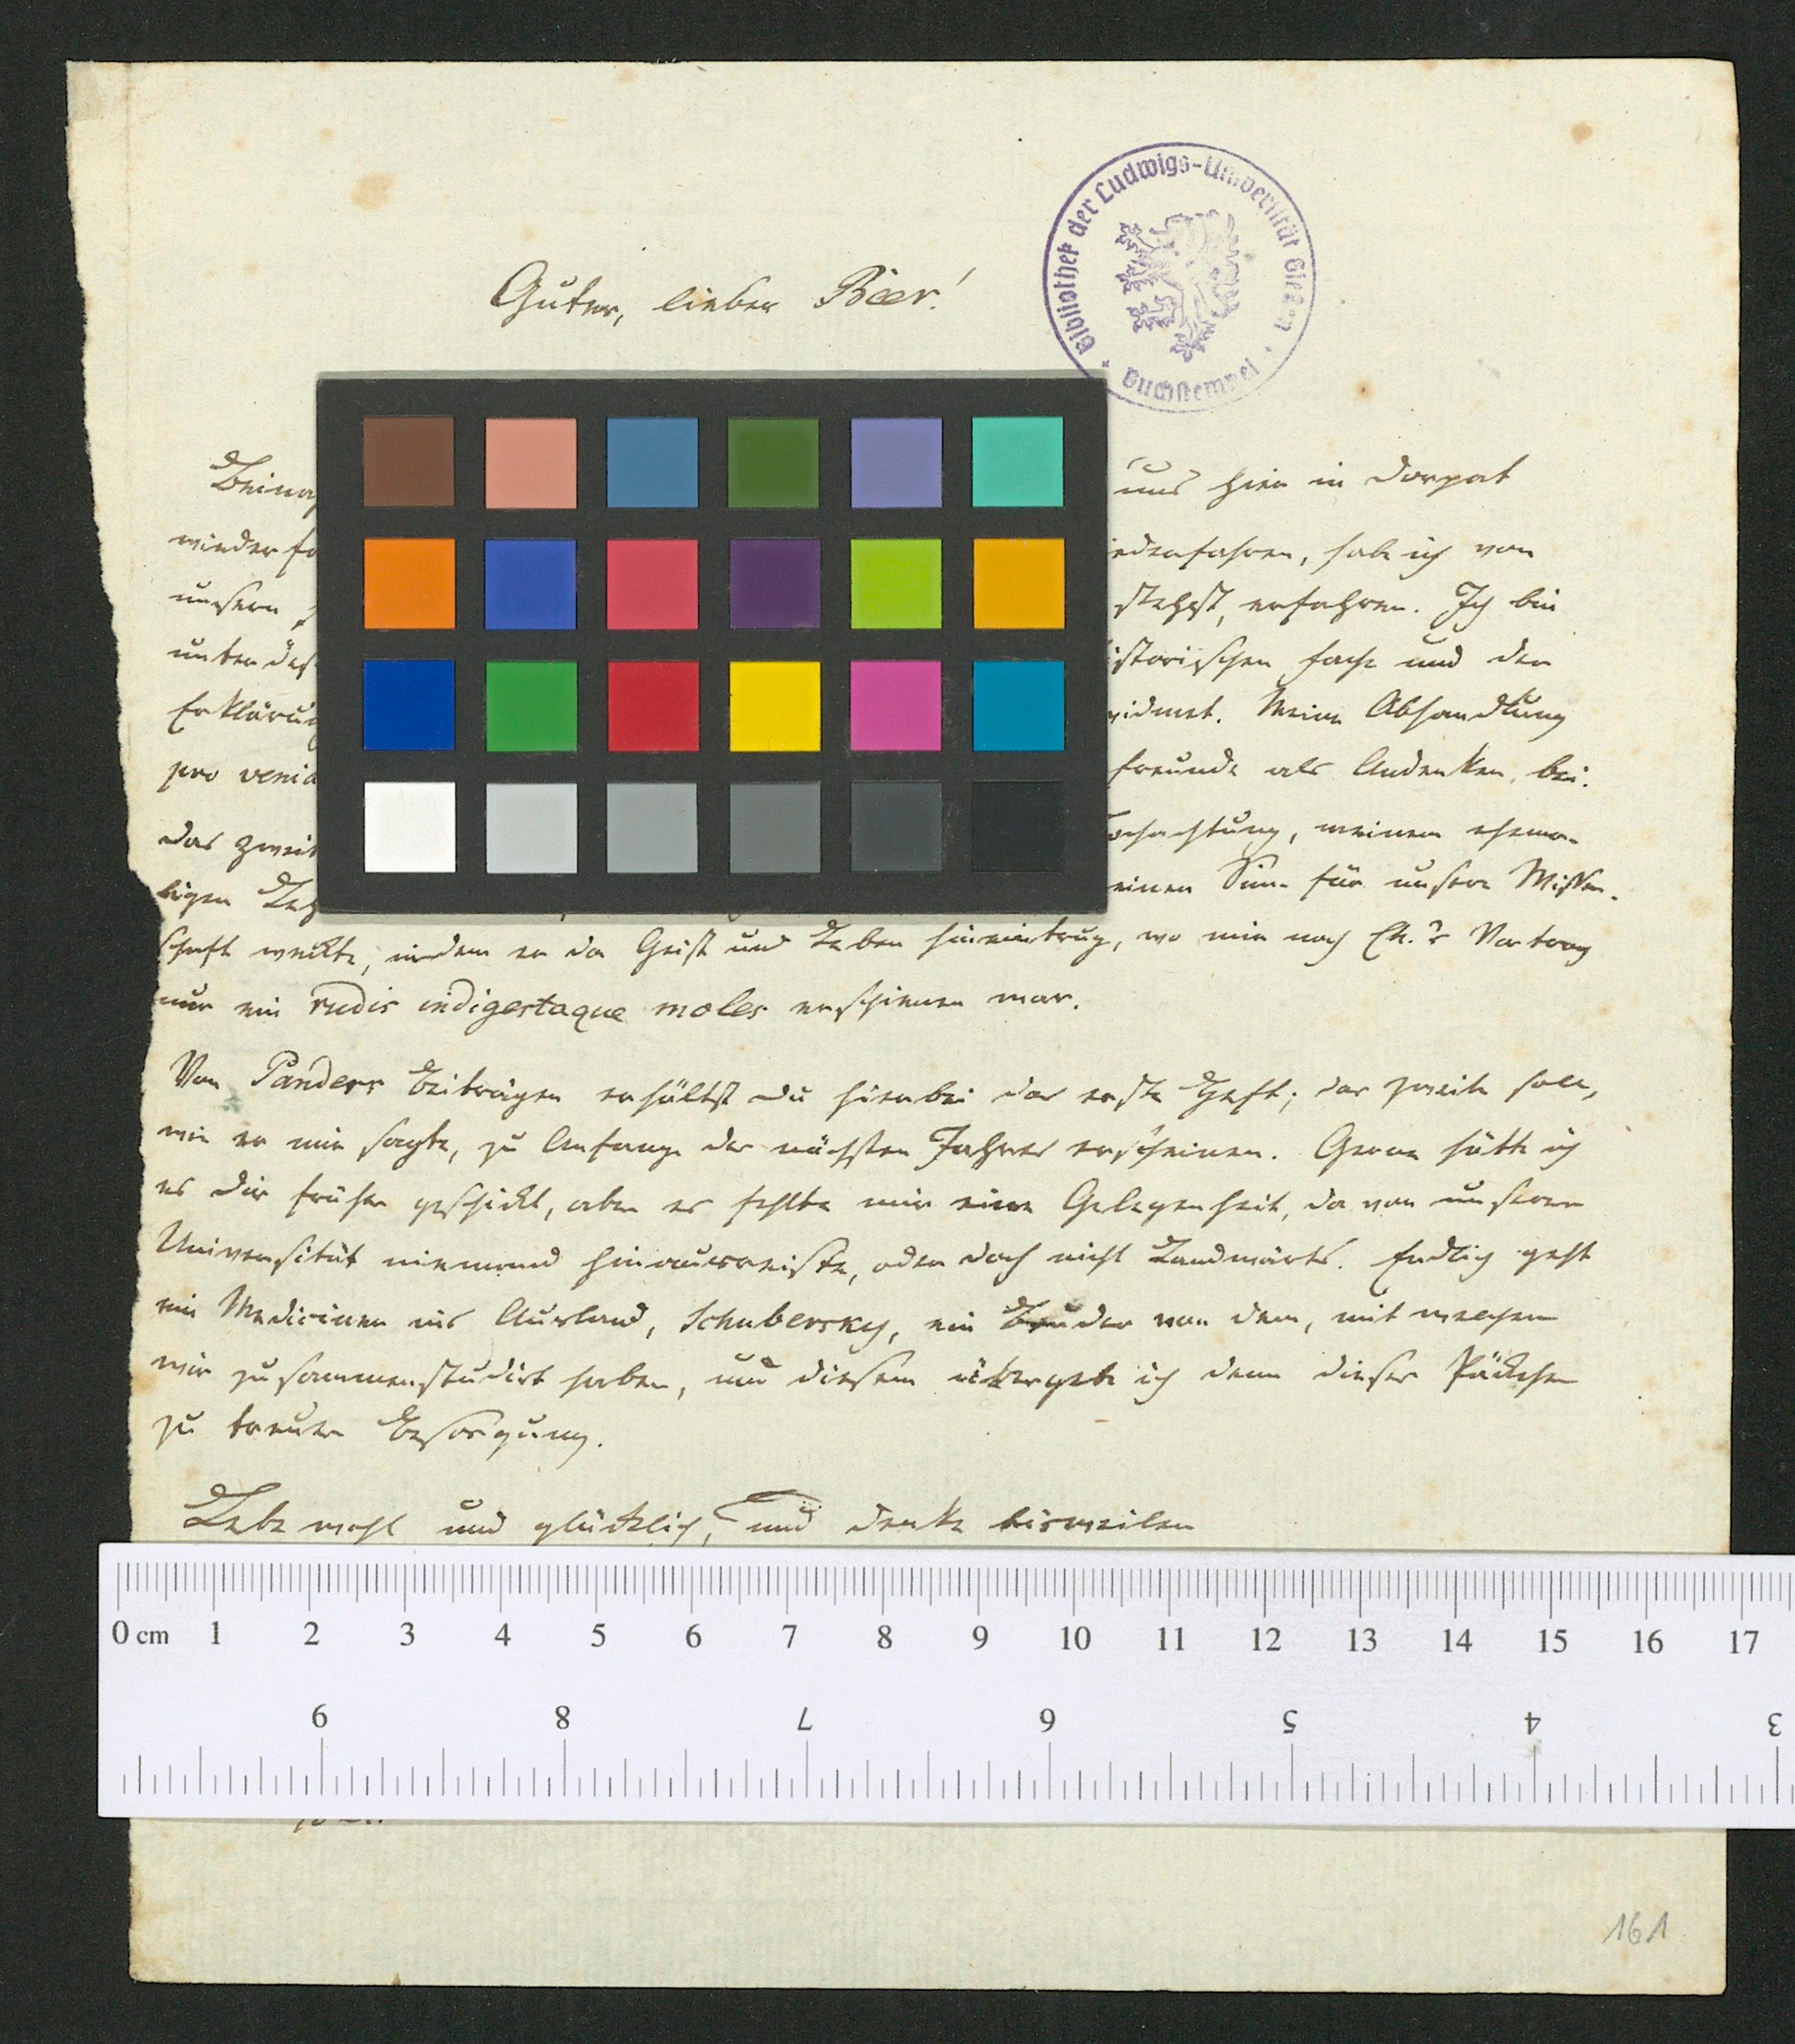 Bibliothek der Ludwigs-Universität Gießen
Buchstempel
Guter, lieber Baer!
uns hier in Dorpat
wieder
iederfahren, hab ich von
unsern
stehst, erfahren. Ich bin
unterdess
istorischen Fache und der
Erklärung
widmet. Meine Abhandlung
pro venia
Freunde als Andenken bei.
Das zweit
ochachtung, meinem ehema-
ligen Leh
einen Sinn für unsere Wissen-
schaft weckte, indem er da Geist und Leben hineintrug, wo mir nach Ch.'s Vortrag
nur ein rudis indigestaque moles erschienen war.
Von Panders Beiträgen erhältst Du hierbei das erste Heft; das zweite soll,
wie er mir sagte, zu Anfange des nächsten Jahres erscheinen. Gerne hätte ich
es Dir früher geschickt, aber es fehlte mir eine Gelegenheit, da von unserer
Universität niemand hinausreiste, oder doch nicht Landwärts. Endlich geht
ein Mediciner ins Ausland, Schubersky, ein Bruder von dem, mit welchem
wir zusammenstudirt haben, und diesem übergebe ich denn dieses Päckchen
zu treuer Besorgung.
Lebe wohl und glücklich, und denke bisweilen
0 cm 1 2 3 4 5 6 7 8 9 10 11 12 13 14 15 16 17
9 8 7 6 5 4 3
161